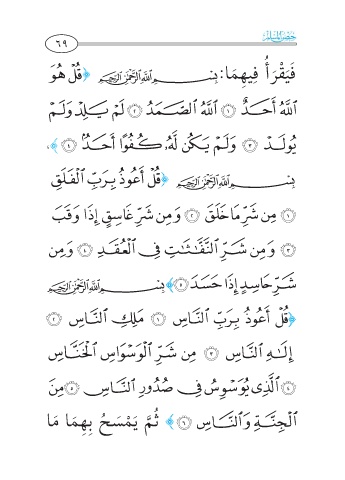 حصن المسلم
٦٩
فَيَقْرَأُ فِيهِمَا: بِسْمِ اللَّهِ الرَّحْمَٰنِ الرَّحِيمِ ﴿قُلْ هُوَ
اللَّهُ أَحَدٌ ١ اللَّهُ الصَّمَدُ ٢ لَمْ يَلِدْ وَلَمْ
يُولَدْ ٣ وَلَمْ يَكُن لَّهُ كُفُوًا أَحَدٌ ٤﴾،
بِسْمِ اللَّهِ الرَّحْمَٰنِ الرَّحِيمِ ﴿قُلْ أَعُوذُ بِرَبِّ الْفَلَقِ
١ مِن شَرِّ مَا خَلَقَ ٢ وَمِن شَرِّ غَاسِقٍ إِذَا وَقَبَ
٣ وَمِن شَرِّ النَّفَّاثَاتِ فِي الْعُقَدِ ٤ وَمِن
شَرِّ حَاسِدٍ إِذَا حَسَدَ ٥﴾ بِسْمِ اللَّهِ الرَّحْمَٰنِ الرَّحِيمِ
﴿قُلْ أَعُوذُ بِرَبِّ النَّاسِ ١ مَلِكِ النَّاسِ ٢
إِلَٰهِ النَّاسِ ٣ مِن شَرِّ الْوَسْوَاسِ الْخَنَّاسِ
٤ الَّذِي يُوَسْوِسُ فِي صُدُورِ النَّاسِ ٥ مِنَ
الْجِنَّةِ وَالنَّاسِ ٦﴾ ثُمَّ يَمْسَحُ بِهِمَا مَا